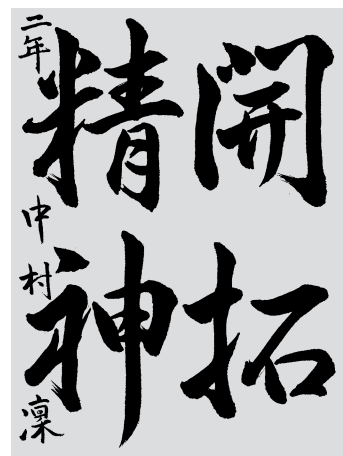 開拓
精神
二年 中村 凜